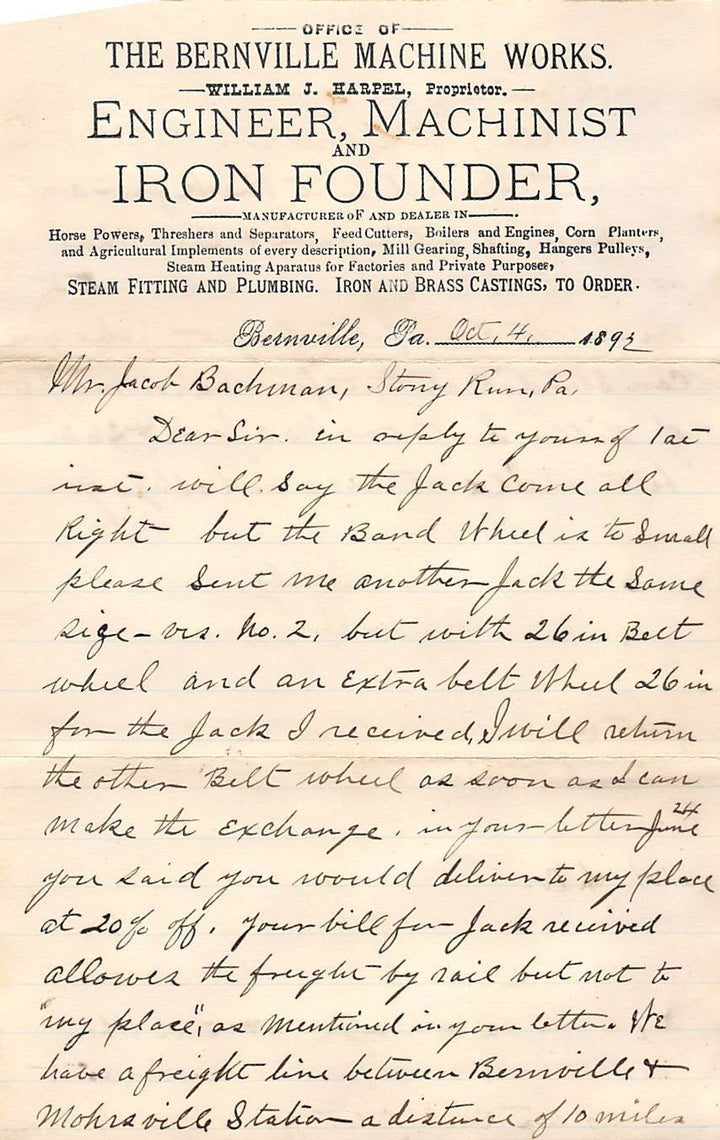 OFFICE OF
THE BERNVILLE MACHINE WORKS.
WILLIAM J. HARPEL, Proprietor.
ENGINEER, MACHINIST
AND
IRON FOUNDER,
MANUFACTURER OF AND DEALER IN
Horse Powers, Threshers and Separators, Feed Cutters, Boilers and Engines, Corn Planters,
and Agricultural Implements of every description, Mill Gearing, Shafting, Hangers Pulleys,
Steam Heating Aparatus for Factories and Private Purposes,
STEAM FITTING AND PLUMBING. IRON AND BRASS CASTINGS, TO ORDER.
Bernville, Pa. Oct. 4, 1892
Mr. Jacob Bachman, Stony Run, Pa.
Dear Sir. in reply to yours of 1st
inst. will say the Jack Come all
Right but the Band Wheel is to Small
please Sent me another Jack the Same
size - vis. No. 2, but with 26 in Belt
wheel and an Extra belt Wheel 26 in
for the Jack I received, I will return
the other Belt wheel as soon as I can
make the Exchange. in your letter June 24
you said you would deliver to my place
at 20% off. your bill for Jack received
allowes the freight by rail but not to
"my place", as mentioned in your letter. We
have a freight line between Bernville &
Mohrsville Station a distance of 10 miles